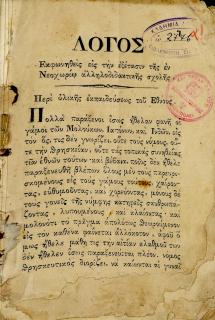 ΛΟΓΟΣ
Ἐκφωνηθεὶς εἰς τὴν ἐξέτασιν τῆς ἐν
Νεοχωρίῳ ἀλληλοδιδακτικῆς σχολῆς
Περὶ ὁλικῆς ἐκπαιδεύσεως τοῦ Ἔθνους
Πολλὰ παράξενοι ἴσως ἤθελαν φανῆ οἱ
γάμοι τῶν Μολούκων, Ἰαπόνων, καὶ Ἰνδῶν εἰς
τὸν
τε τὴν Θρησκείαν, οὔτε τὰς τοπικὰς συνηθείας
τῶν ἐθνῶν τούτων· καὶ βέβαια ποῖος δὲν ἤθελε
παραξενευθῆ βλέπων ὅλους μὲν τοὺς παρευρι-
σκομένους εἰς τοὺς γάμους τούτους, χαίρον-
τας, εὐθυμοῦντας, καὶ χορεύοντας, μόνους δὲ
τοὺς γονεῖς τῆς νύμφης κατηφεῖς σκυθρωπά-
ζοντας, λυπουμένους καὶ κλαίοντας· καὶ
μολονότι τὸ πρᾶγμα ἁπολύτως θεωρούμενον
εἰς τὸν καθένα φαίνεται ἀλλόκοτον, ἀφοῦ ὅ-
μως ἤθελε μάθῃ τις τὴν αἰτίαν αὐτοῦ των
δὲν ἤθελεν ἴσως παραξενεύεται πλέον. νόμος
Θρησκευτικὸς διορίζει, νὰ καίωνται αἱ γυναῖ